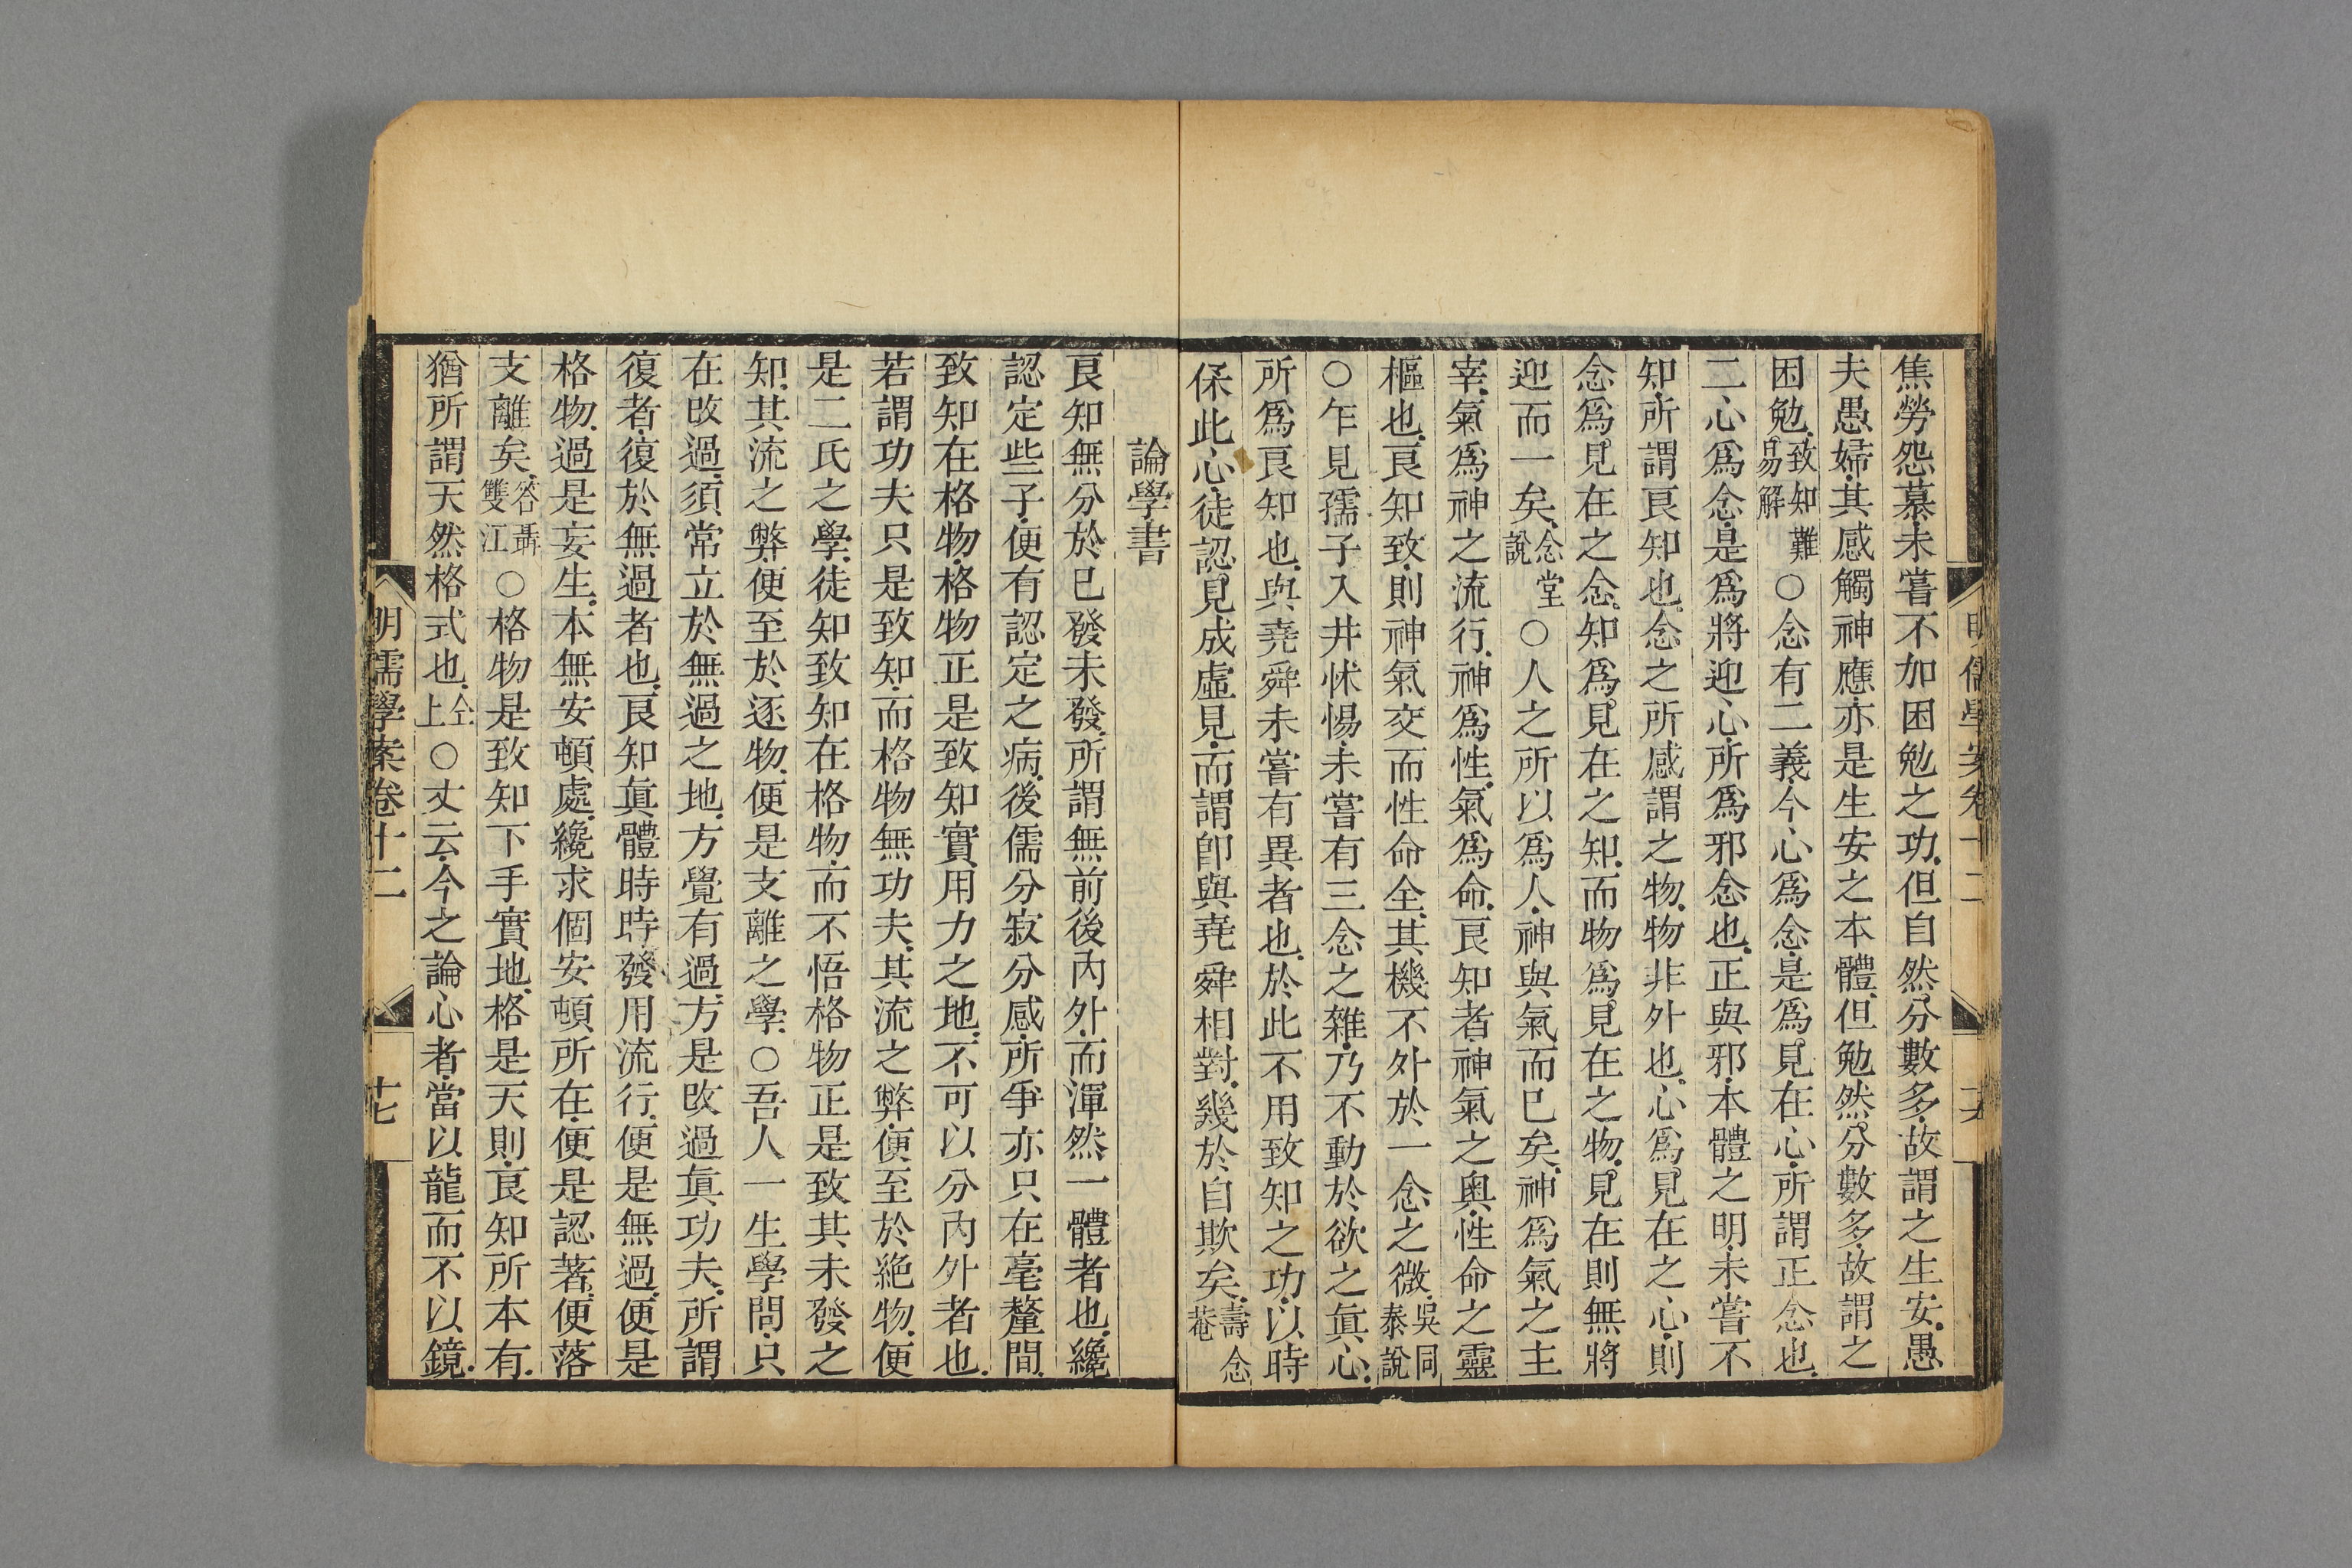 焦勞怨慕未嘗不加困勉之功但自然分數多故謂之生安愚
夫愚婦其感觸神應亦是生安之本體但勉然分數多故謂之
困勉致知難易解○念有二義今心爲念是爲見在心所謂正念也
二心爲念是爲將迎心所爲邪念也正與邪本體之明未嘗不
知所謂良知也念之所感謂之物物非外也心爲見在之心則
念爲見在之念知爲見在之知而物爲見在之物見在則無將
迎而一矣念堂說○人之所以爲人神與氣而已矣神爲氣之主
宰氣爲神之流行神爲性氣爲命良知者神氣之奧性命之靈
樞也良知致則神氣交而性命全其機不外於一念之微吳同泰說
○乍見孺子入井怵惕未嘗有三念之雜乃不動於欲之眞心
所爲良知也與堯舜未嘗有異者也於此不用致知之功以時
保此心徒認見成虛見而謂卽與堯舜相對幾於自欺矣壽念菴
論學書
良知無分於已發未發所謂無前後內外而渾然一體者也纔
認定些子便有認定之病後儒分寂分感所爭亦只在毫釐間
致知在格物格物正是致知實用力之地不可以分內外者也
若謂功夫只是致知而格物無功夫其流之弊便至於絶物便
是二氏之學徒知致知在格物而不悟格物正是致其未發之
知其流之弊便至於逐物便是支離之學○吾人一生學問只
在改過須常立於無過之地方覺有過方是改過眞功夫所謂
復者復於無過者也良知眞體時時發用流行便是無過便是
格物過是妄生本無安頓處纔求個安頓所在便是認著便落
支離矣答聶雙江○格物是致知下手實地格是天則良知所本有
猶所謂天然格式也仝上○丈云今之論心者當以龍而不以鏡
明儒學案卷十二
十七